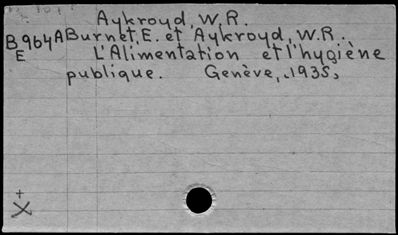 Aykroyd, W.R.
B964A Burnet, E. et Aykroyd, W.R.
E L'Alimentation et l'hygiène
publique. Genève, 1935,
+
X